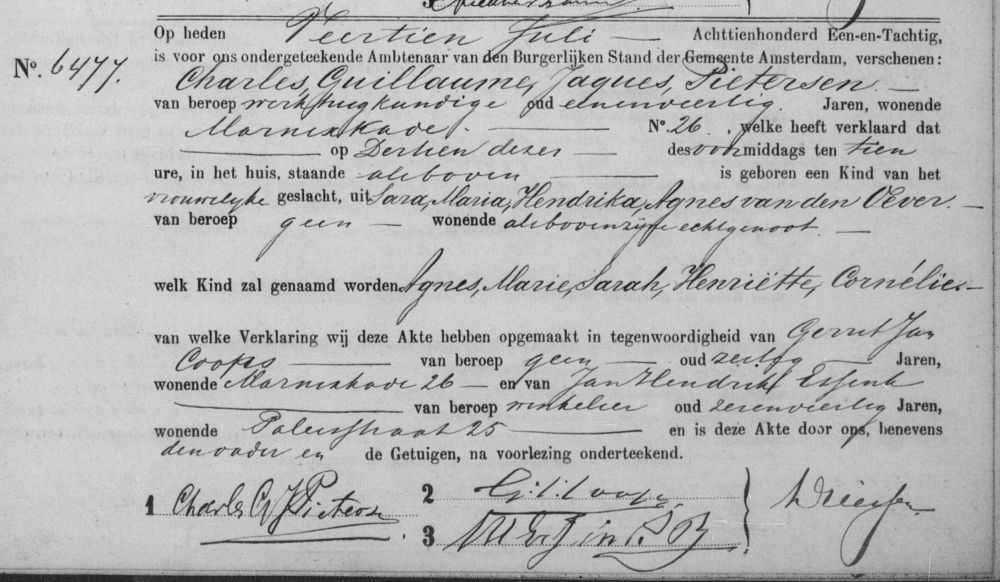 Op heden Veertien Juli — Achttienhonderd Een-en-Tachtig,
is voor ons ondergeteekende Ambtenaar van den Burgerlijken Stand der Gemeente Amsterdam, verschenen:
No. 6477. Charles, Guillaume, Jaques, Pietersen. —
van beroep werktuigkundige oud eenenveertig. Jaren, wonende
Marnixkade. — No. 26, welke heeft verklaard dat
— op Dertien dezer — des voormiddags ten tien
ure, in het huis, staande alsboven — is geboren een Kind van het
vrouwelijke geslacht, uit Sara, Maria, Hendrika, Agnes van den Oever. —
van beroep geen — wonende alsboven zijne echtgenoot. —
welk Kind zal genaamd worden Agnes, Marie, Sarah, Henriëtte, Cornélie. —
van welke Verklaring wij deze Akte hebben opgemaakt in tegenwoordigheid van Gerrit Jan
Coops — van beroep geen — oud zestig — Jaren,
wonende Marnixkade 26 — en van Jan Hendrik Essink
— van beroep winkelier oud zevenveertig Jaren,
wonende 25 — en is deze Akte door ons, benevens
den vader en de Getuigen, na voorlezing onderteekend.
1 Charles G J Pietersen
2 G. J. Coops
3